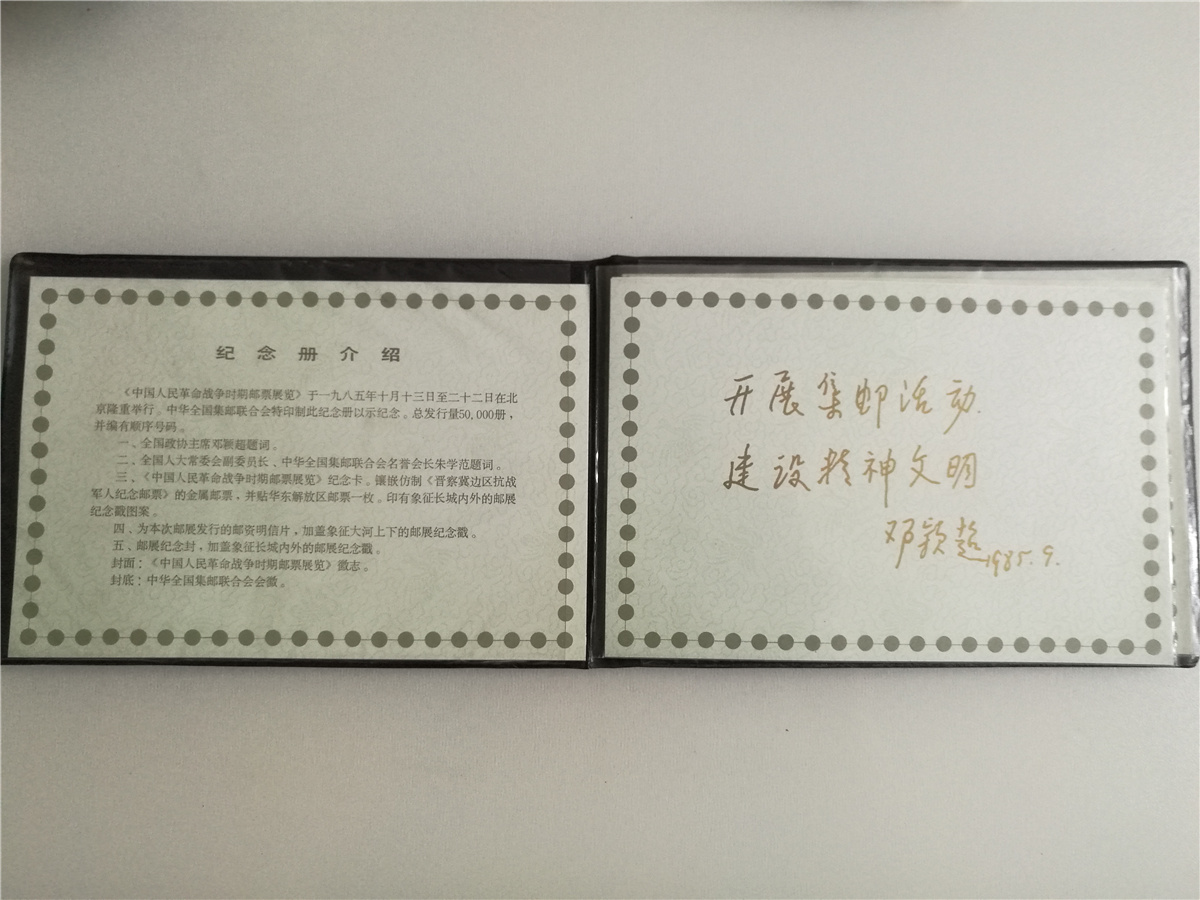 纪念册介绍
《中国人民革命战争时期邮票展览》于一九八五年十月十三日至二十二日在北
京隆重举行。中华全国集邮联合会特印制此纪念册以示纪念。总发行量50,000册，
并编有顺序号码。
一、全国政协主席邓颖超题词。
二、全国人大常委会副委员长、中华全国集邮联合会名誉会长朱学范题词。
三、《中国人民革命战争时期邮票展览》纪念卡。镶嵌仿制《晋察冀边区抗战
军人纪念邮票》的金属邮票，并贴华东解放区邮票一枚。印有象征长城内外的邮展
纪念戳图案。
四、为本次邮展发行的邮资明信片，加盖象征大河上下的邮展纪念戳。
五、邮展纪念封，加盖象征长城内外的邮展纪念戳。
封面：《中国人民革命战争时期邮票展览》徽志。
封底：中华全国集邮联合会会徽。
开展集邮活动.
建设精神文明
邓颖超1985.9.